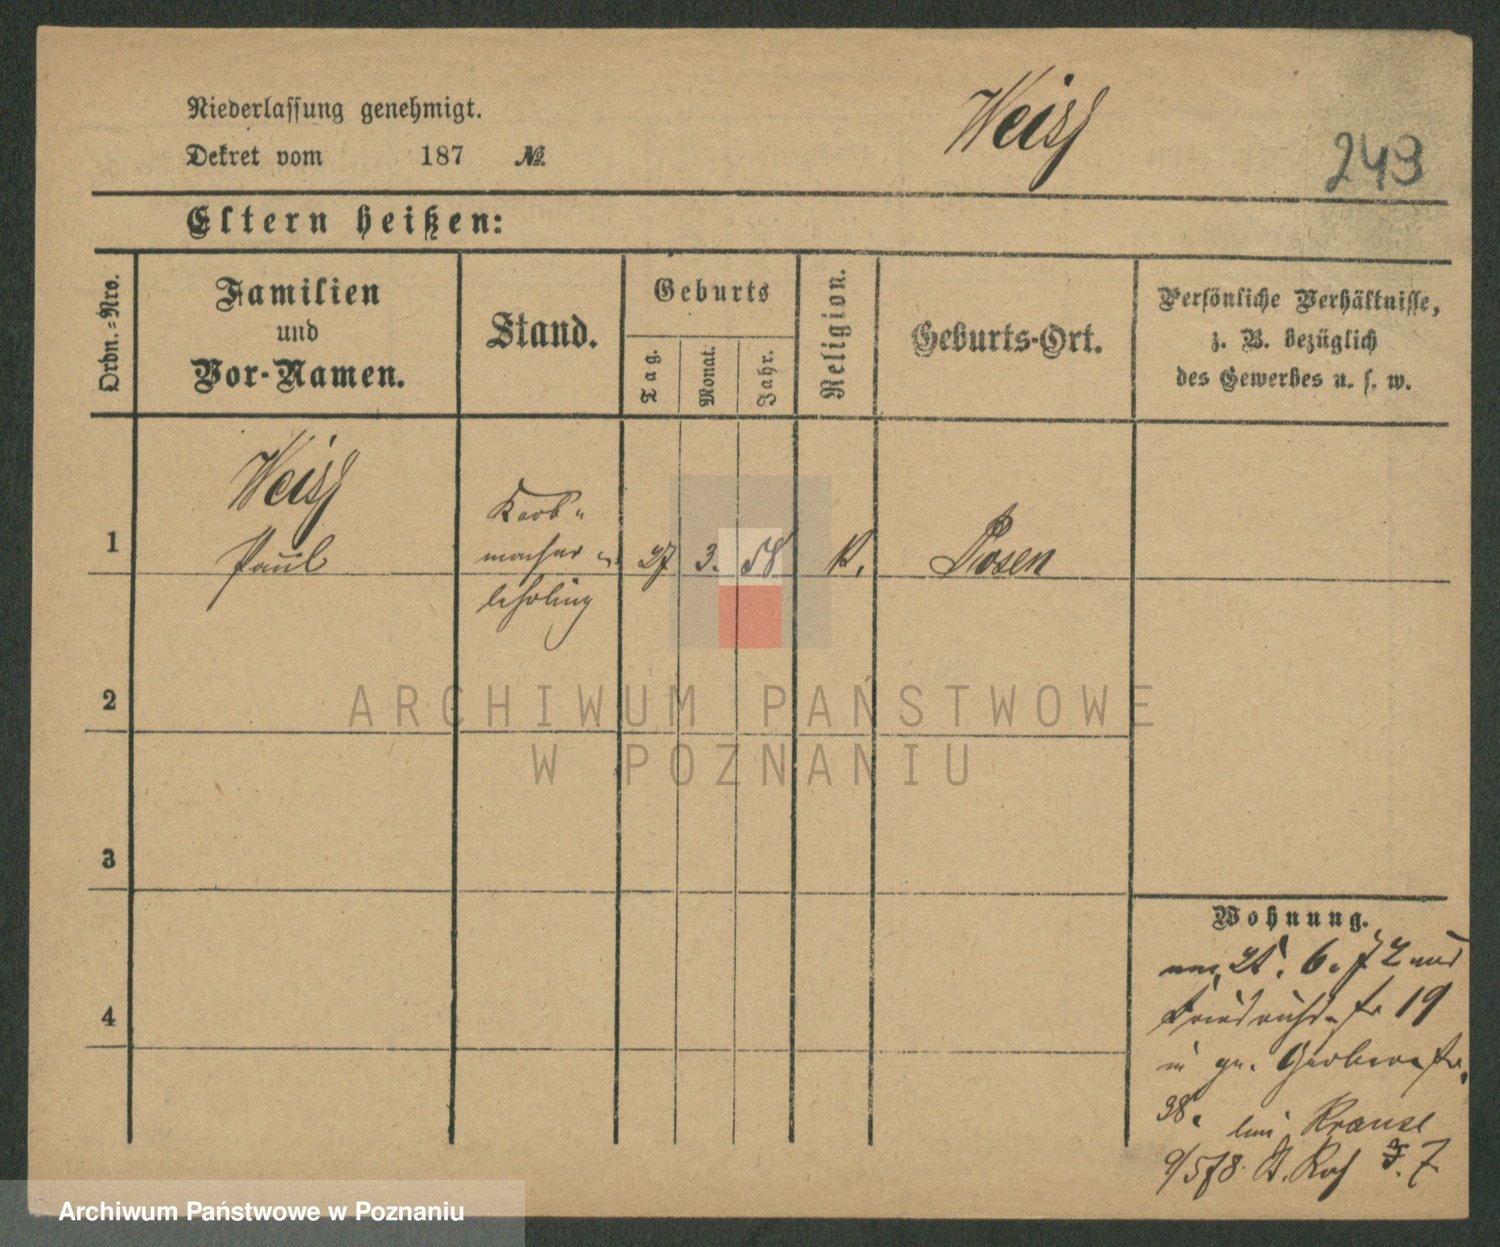 Niederlassung genehmigt.
Dekret vom 187 №
Weiss
249
Eltern heißen:
Ordn.-Nro.
Familien
und
Vor-Namen.
Stand.
Geburts
Tag.
Monat.
Jahr.
Religion.
Geburts-Ort.
Persönliche Verhältnisse,
z. B. bezüglich
des Gewerbes u. s. w.
1
Weiss
Paul
Korb-
macher-
lehrling
27 3. 58 K. Posen
2
3
4
Wohnung.
6. 72
Friedrichstr 19
in gr. Gerberstr.
38. bei Krause
9/5 78. 7
ARCHIWUM PAŃSTWOWE
W POZNANIU
Archiwum Państwowe w Poznaniu